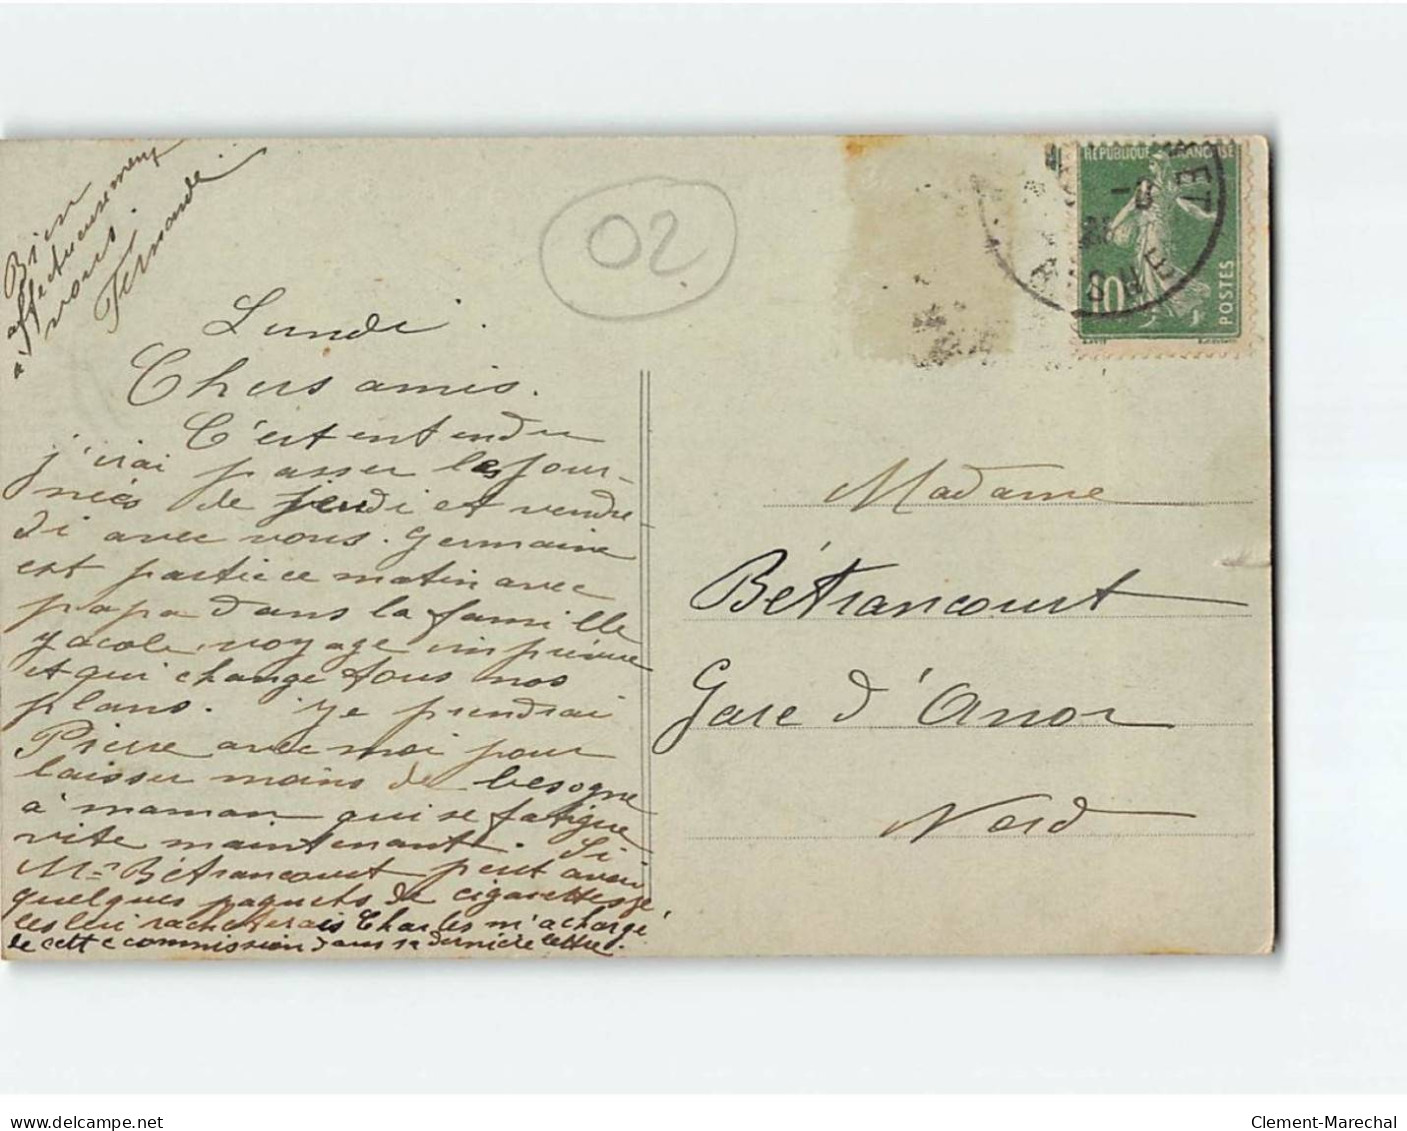 Bien
affectueusement
à vous.
Fernande
02
RÉPUBLIQUE FRANÇAISE
10
POSTES
AISNE
Lundi.
Chers amis.
C'est entendu
j'irai passer les jour-
nées de jeudi et vendre-
di avec vous. Germaine
est partie ce matin avec
papa dans la famille
Jacob, voyage imprévu
et qui change tous nos
plans. Je prendrai
Pierre avec moi pour
laisser moins de besogne
à maman qui se fatigue
vite maintenant. Si
Mr Bétrancourt peut avoir
quelques paquets de cigarettes je
les lui rachèterais Charles m'a chargé
de cette commission dans sa dernière lettre.
Madame
Bétrancourt
Gare d'Anor
Nord
www.delcampe.net
Clement-Marechal